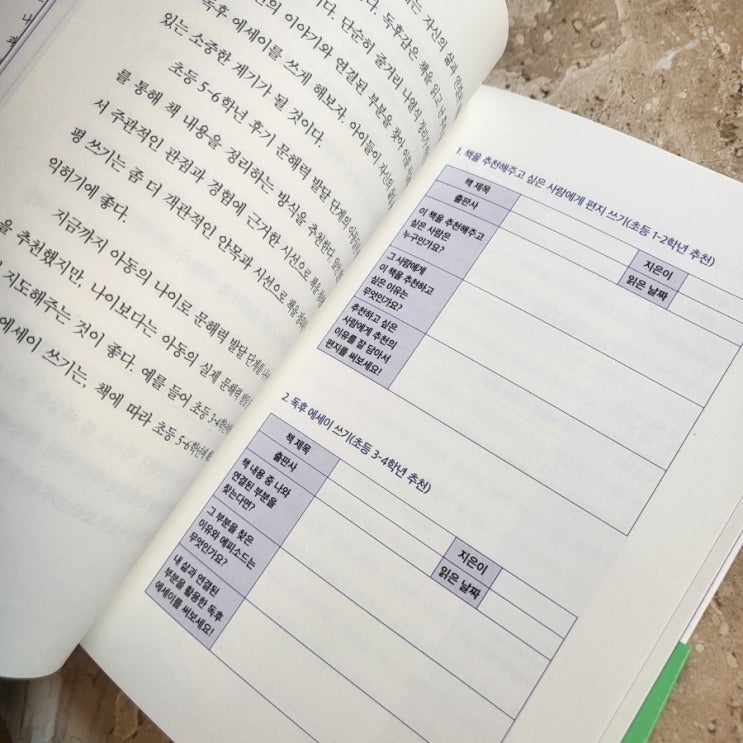 는 자신의 삶과
다. 독후감은 책을 읽고
이다. 단순히 줄거리 나열식
의 이야기와 연결된 부분을 찾아
독후 에세이를 쓰게 해보자. 아이들이 자신의
있는 소중한 계기가 될 것이다.
초등 5-6학년 후기 문해력 발달 단계의
를 통해 책 내용을 정리하는 방식을 추천한다.
서 주관적인 관점과 경험에 근거한 시선으로
평 쓰기는 좀 더 객관적인 안목과 시선으로 책을
익히기에 좋다.
지금까지 아동의 나이로 문해력 발달 단계를
을 추천했지만, 나이보다는 아동의 실제 문해력
지도해주는 것이 좋다. 예를 들어 초등 3-4학년
에세이 쓰기는, 책에 따라 초등 5-6학년
1. 책을 추천해주고 싶은 사람에게 편지 쓰기(초등 1-2학년 추천)
책 제목
출판사
지은이
읽은 날짜
이 책을 추천해주고
싶은 사람은
누구인가요?
그 사람에게
이 책을 추천하고
싶은 이유는
무엇인가요?
추천하고 싶은
사람에게 추천의
이유를 잘 담아서
편지를 써보세요!
2. 독후 에세이 쓰기(초등 3-4학년 추천)
책 제목
출판사
지은이
읽은 날짜
책 내용 중 나와
연결된 부분을
찾는다면?
그 부분을 찾은
이유와 에피소드는
무엇인가요?
내 삶과 연결된
부분을 활용한 독후
에세이를 써보세요!